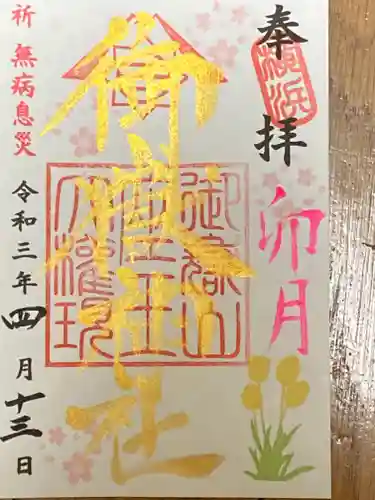 奉拝
横浜
卯月
御嶽神社
御嶽山
座王大権現
祈 無病息災
令和三年四月十三日